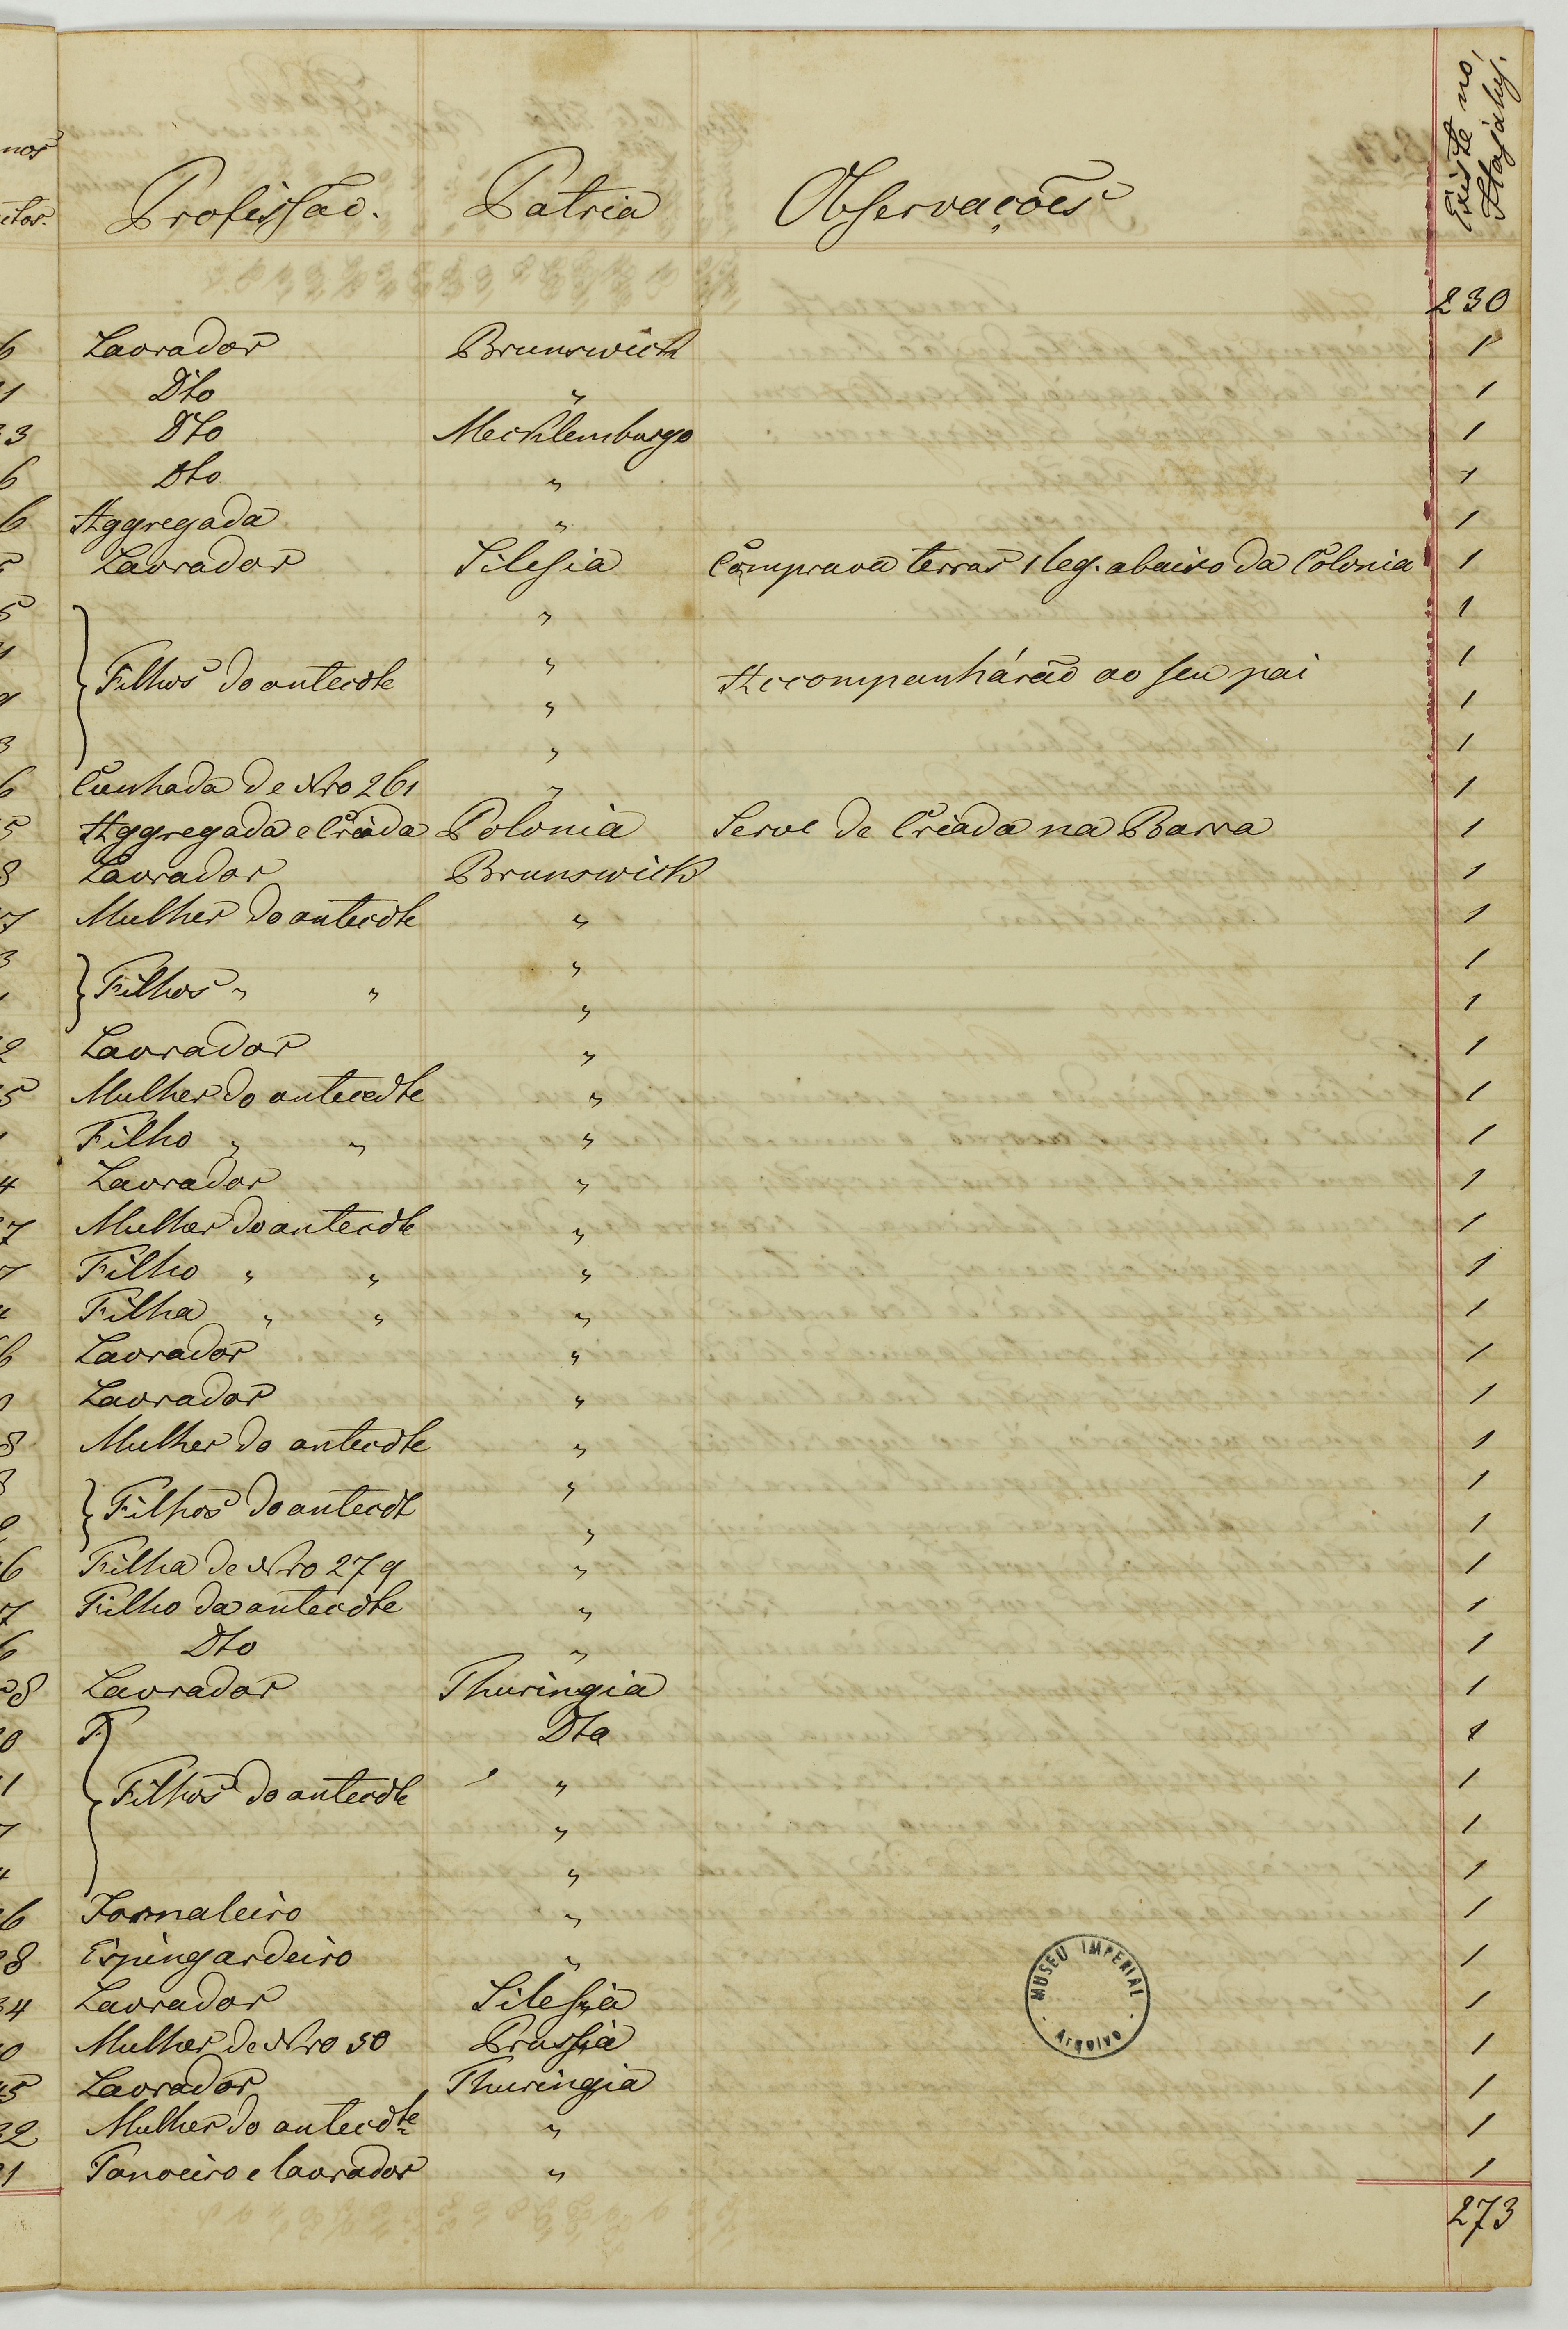 nos Existe no
itos. Profissão. Patria Observações Itajahy.
230
6 Lavrador Brunswich 1
1 Dto " 1
33 Dto Mecklemburgo 1
6 Dto " 1
6 Aggregada " 1
5 Lavrador Silesia Comprava terras 1 leg. abaixo da Colonia 1
5 " 1
" 1
Filhos do antecdte Accompanhárão ao seu pai
9 " 1
3 " 1
6 Cunhada de Nro 261 " 1
5 Aggregada e Criada Polonia Serve de Criada na Barra 1
8 Lavrador Brunswich 1
7 Mulher do antecdte " 1
3 " 1
1 Filhos " " " 1
2 Lavrador " 1
5 Mulher do antecedte " 1
1 Filho " " " 1
4 Lavrador " 1
7 Mulher do antecdte " 1
7 Filho " " " 1
4 Filha " " " 1
6 Lavrador " 1
0 Lavrador " 1
8 Mulher do antecdte " 1
8 " 1
2 Filhos do antecdt " 1
6 Filha de Nro 279 " 1
7 Filho da antecdte " 1
6 Dto " 1
28 Lavrador Thuringia 1
0 F Dta 1
11 Filhos do antecdte " 1
7 " 1
4 " 1
6 Jornaleiro " 1
28 Espingardeiro " 1
34 Lavrador Silesia 1
0 Mulher de Nro 50 Prussia 1
45 Lavrador Thuringia 1
32 Mulher do antecdte " 1
21 Tanoeiro e lavrador " 1
273
MUSEU IMPERIAL
ARQUIVO